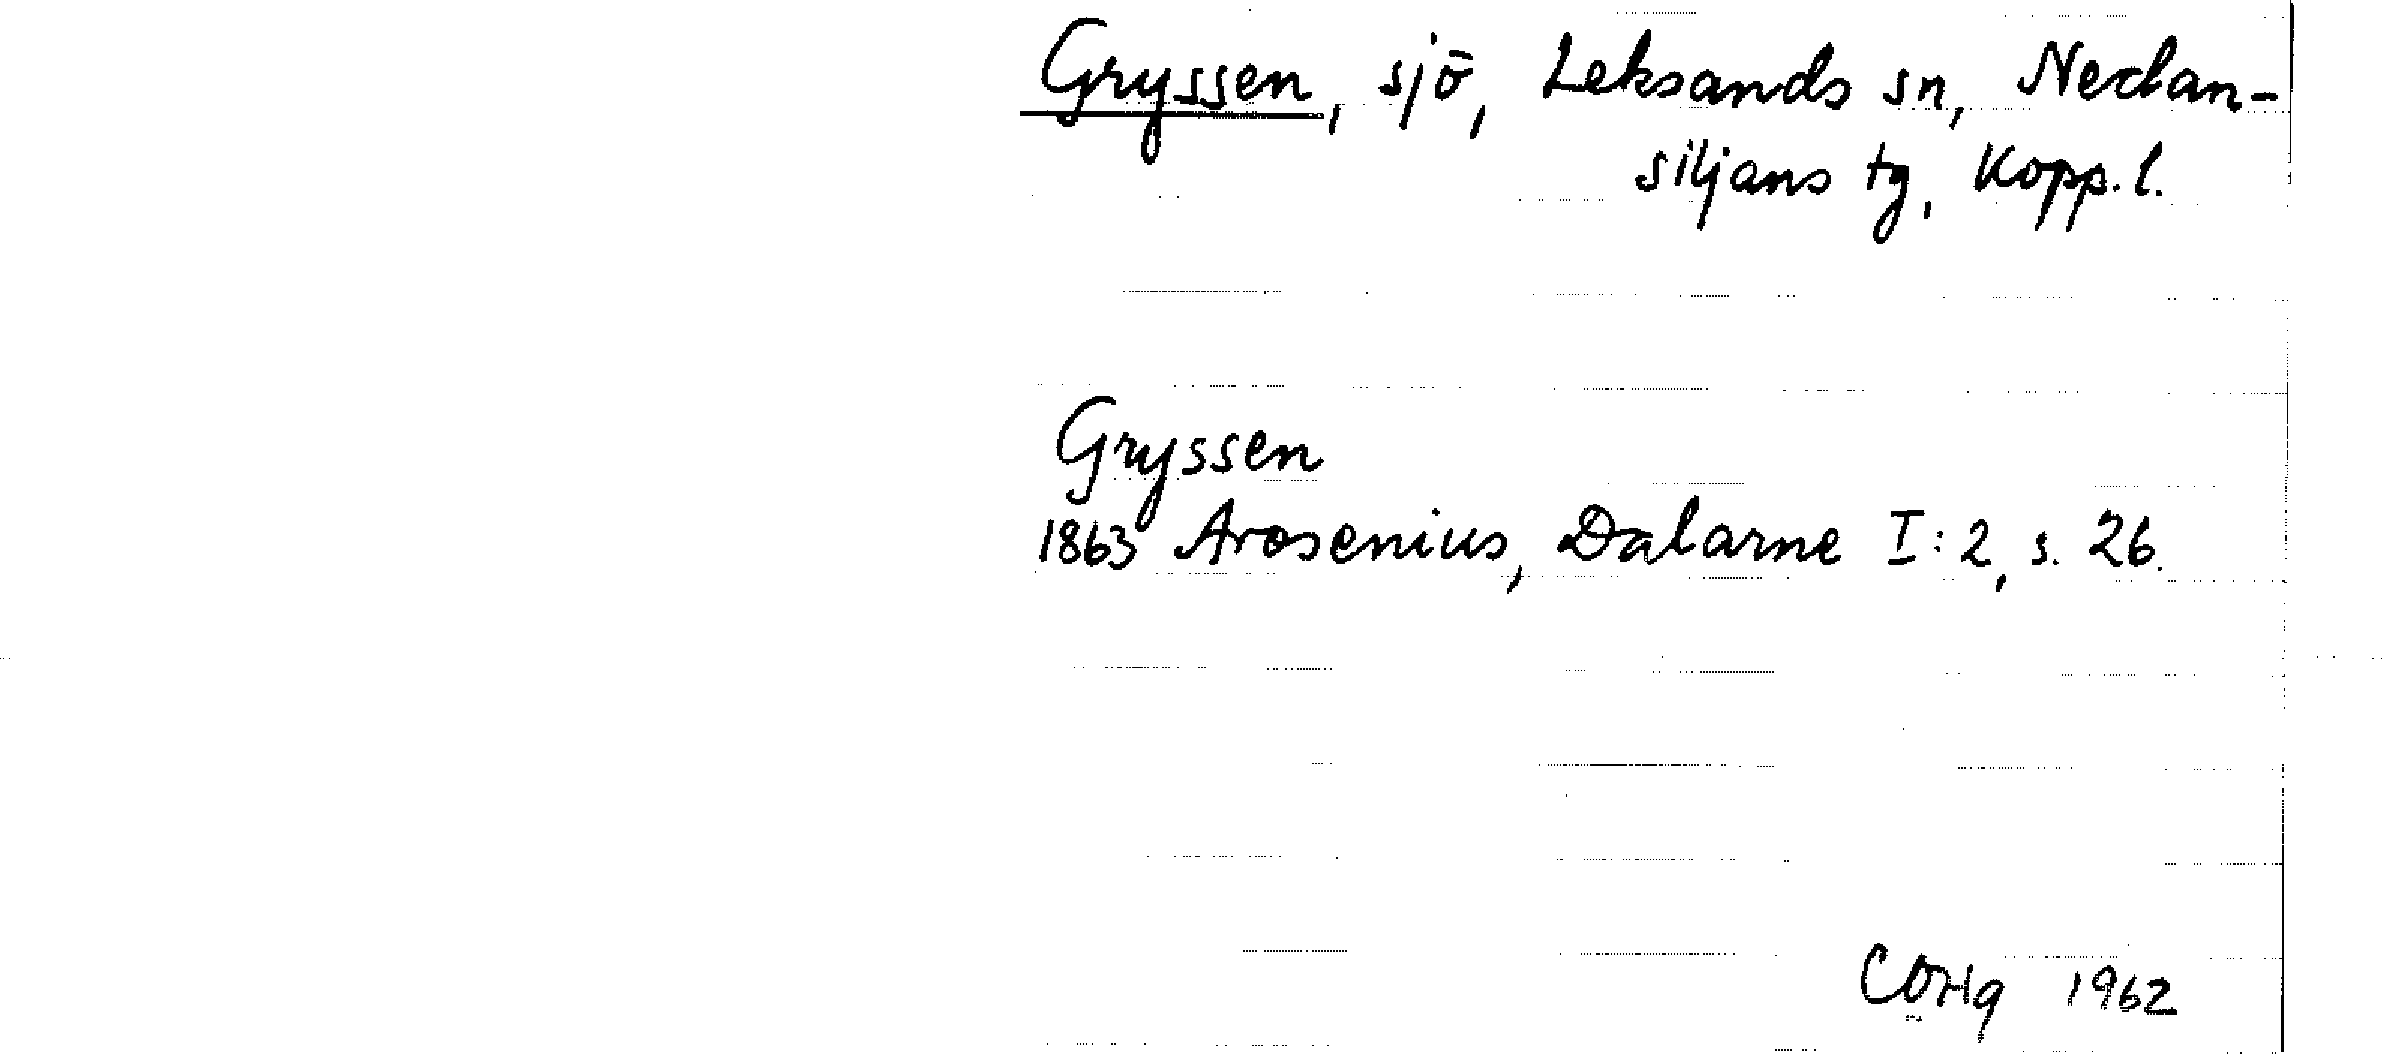 Gryssen, sjö, Leksands sn, Nedan-
siljans tg, Kopp. l.
Gryssen
1863 Arosenius, Dalarne I:2, s. 26.
COHg 1962